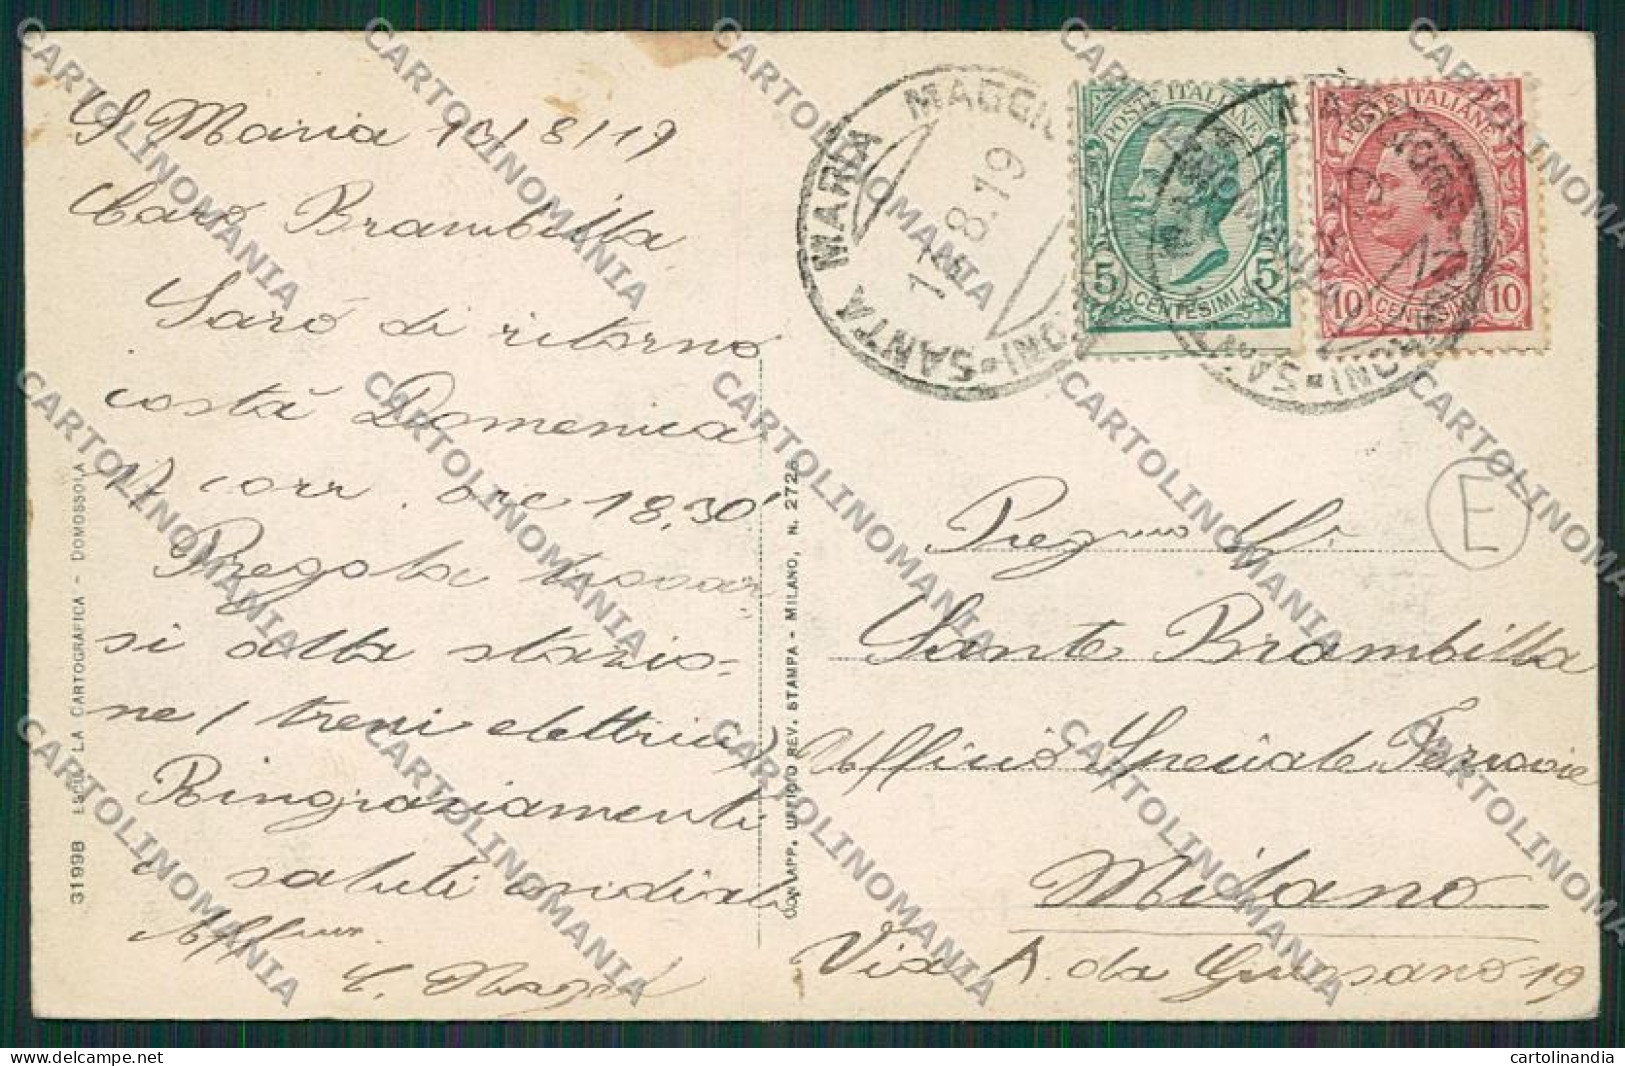 S. Maria 14/8/19
Caro Brambilla
Sarò di ritorno
costà Domenica
17 corr. ore 18,30
Pregola trovar
si alla stazio-
ne (treni elettrici)
Ringraziamenti
e saluti cordiali
Aff.mo
31998 LA CARTOGRAFICA - DOMOSSOLA
UFFICIO REV. STAMPA - MILANO, N. 272
SANTA MARIA MAGGIO
8.19
POSTE ITALIANE
5 5
CENTESIMI
POSTE ITALIANE
10 10
CENTESIMI
E
Preg.mo Sig.
Sante Brambilla
Ufficio Speciale Ferrovie
Milano
Via A. da Giussano 19
CARTOLINOMANIA
cartolinandia